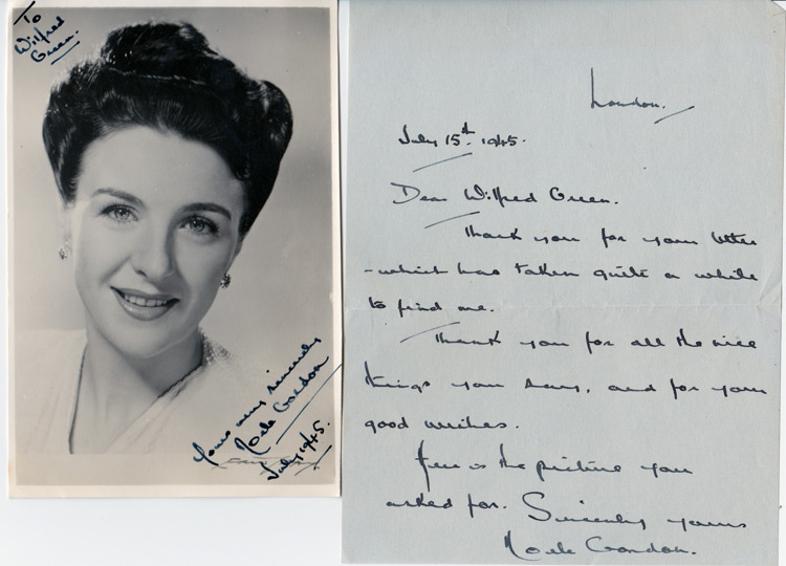 To
Wilfred
Green.
Yours very sincerely
Noele Gordon
July 1945.
London.
July 15th. 1945.
Dear Wilfred Green.
Thank you for your letter
- which has taken quite a while
to find me.
Thank you for all the nice
things you say, and for your
good wishes.
Here is the picture you
asked for. Sincerely yours
Noele Gordon.